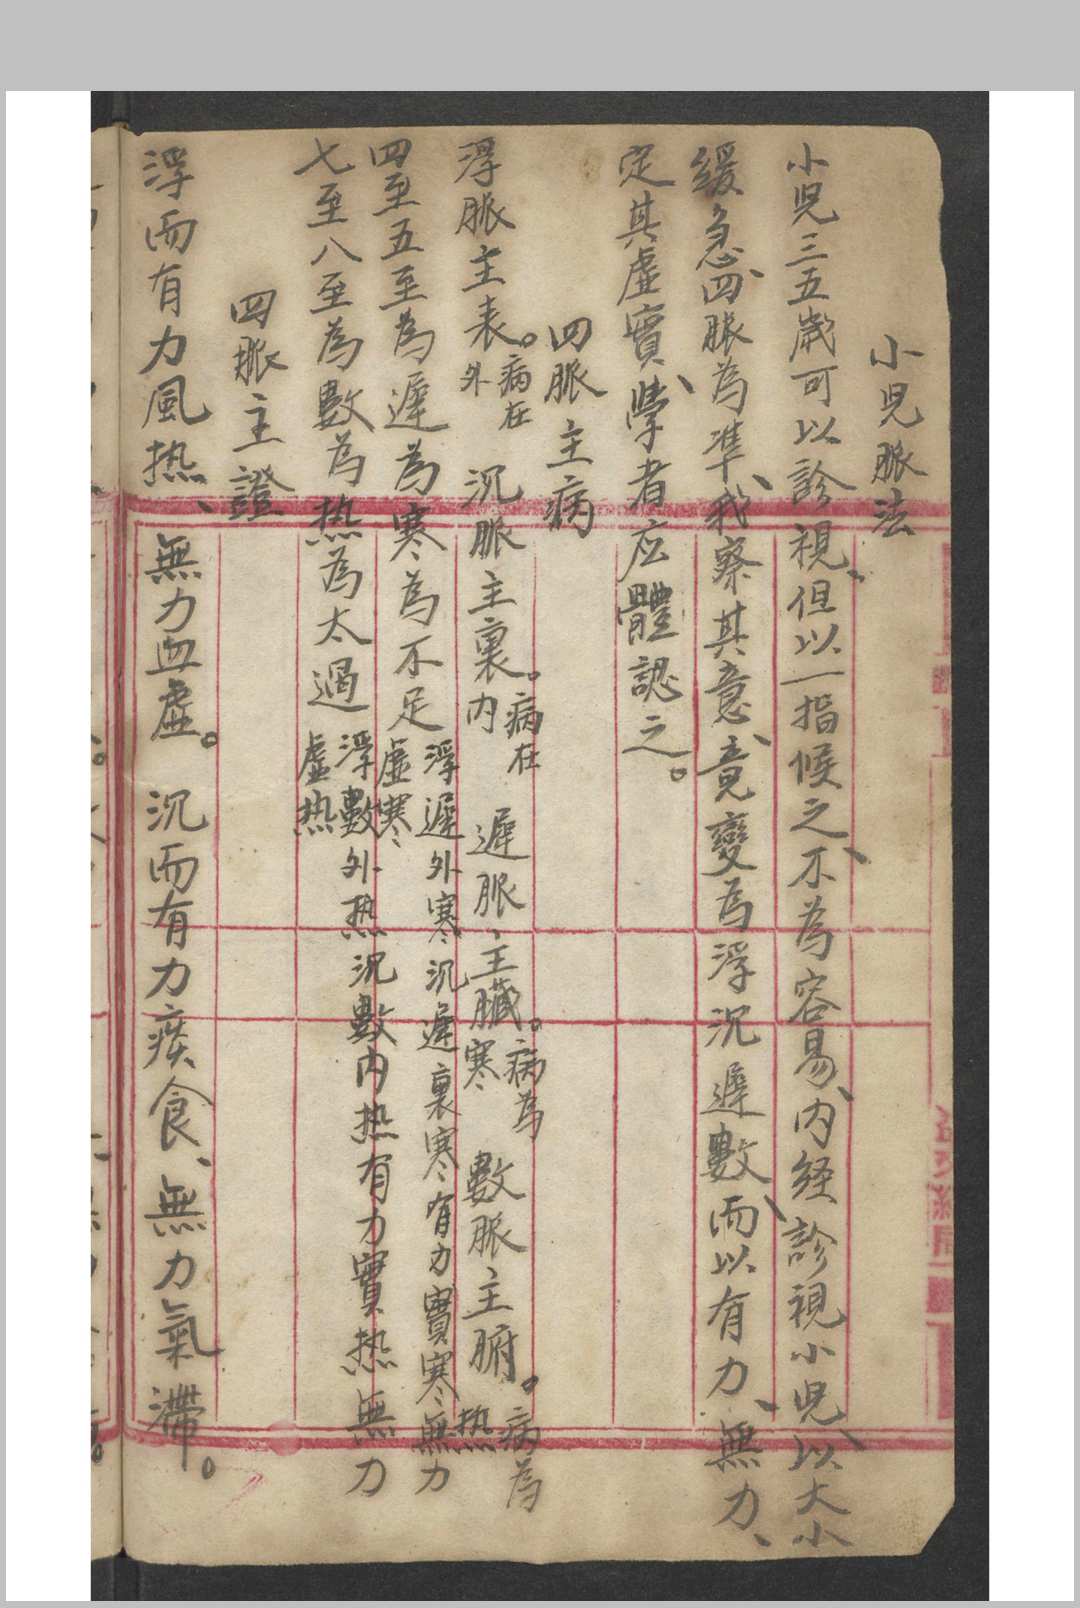 小児脈法
小児三五歲可以診視、但以一指候之、不為容易、内経診視小児、以大小
緩急、四脈為準、我察其意、竟變為浮沉遲數、而以有力、無力、
定其虛實、學者应體認之。
四脈主病
浮脈主表。病在外 沉脈主裏。病在内 遲脈、主臟。病為寒 數脈、主腑。病為热
四至五至為遲為寒為不足浮遲外寒沉遲裏寒有力實寒無力虛寒
七至八至為數為热為太過浮數外热沉數内热有力實热無力虛热
四脈主證
浮而有力風热、無力血虛。沉而有力痰食、無力氣滯。